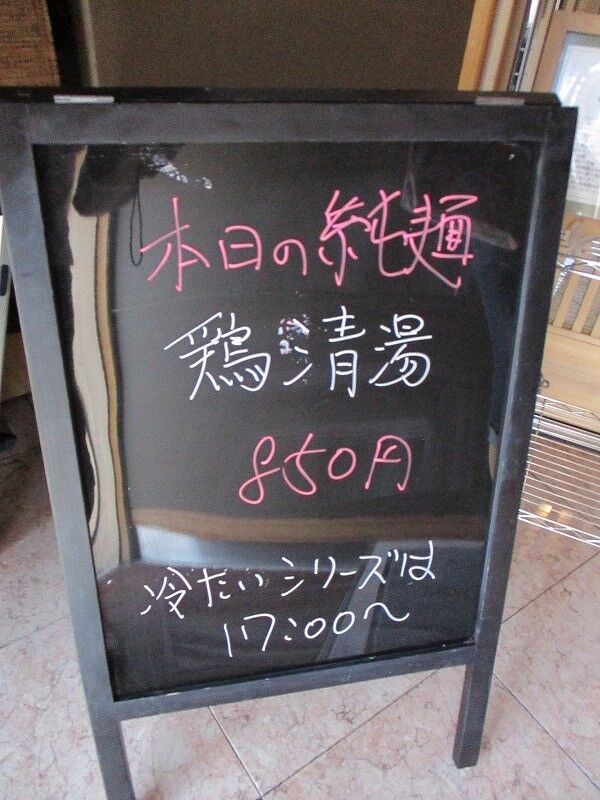 本日の純麺
鶏清湯
850円
冷たいシリーズは
17:00〜